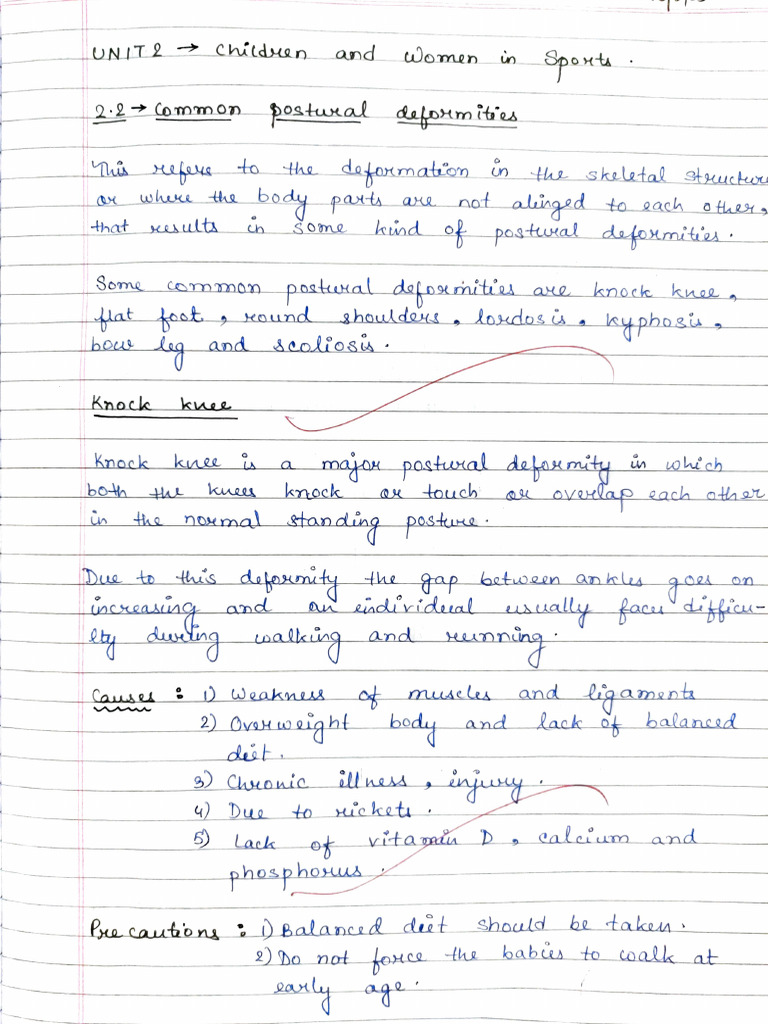 UNIT 2 → Children and Women in Sports.
2.2 → Common postural deformities
This refers to the deformation in the skeletal structure
or where the body parts are not alinged to each other,
that results in some kind of postural deformities.
Some common postural deformities are knock knee,
flat foot, round shoulders, lordosis, kyphosis,
bow leg and scoliosis.
Knock knee
Knock knee is a major postural deformity in which
both the knees knock or touch or overlap each other
in the normal standing posture.
Due to this deformity the gap between ankles goes on
increasing and an individual usually faces difficu-
lty during walking and running.
Causes : 1) Weakness of muscles and ligaments
2) Overweight body and lack of balanced
diet.
3) Chronic illness, injury.
4) Due to rickets.
5) Lack of vitamin D, calcium and
phosphorus.
Precautions : 1) Balanced diet should be taken.
2) Do not force the babies to walk at
early age.